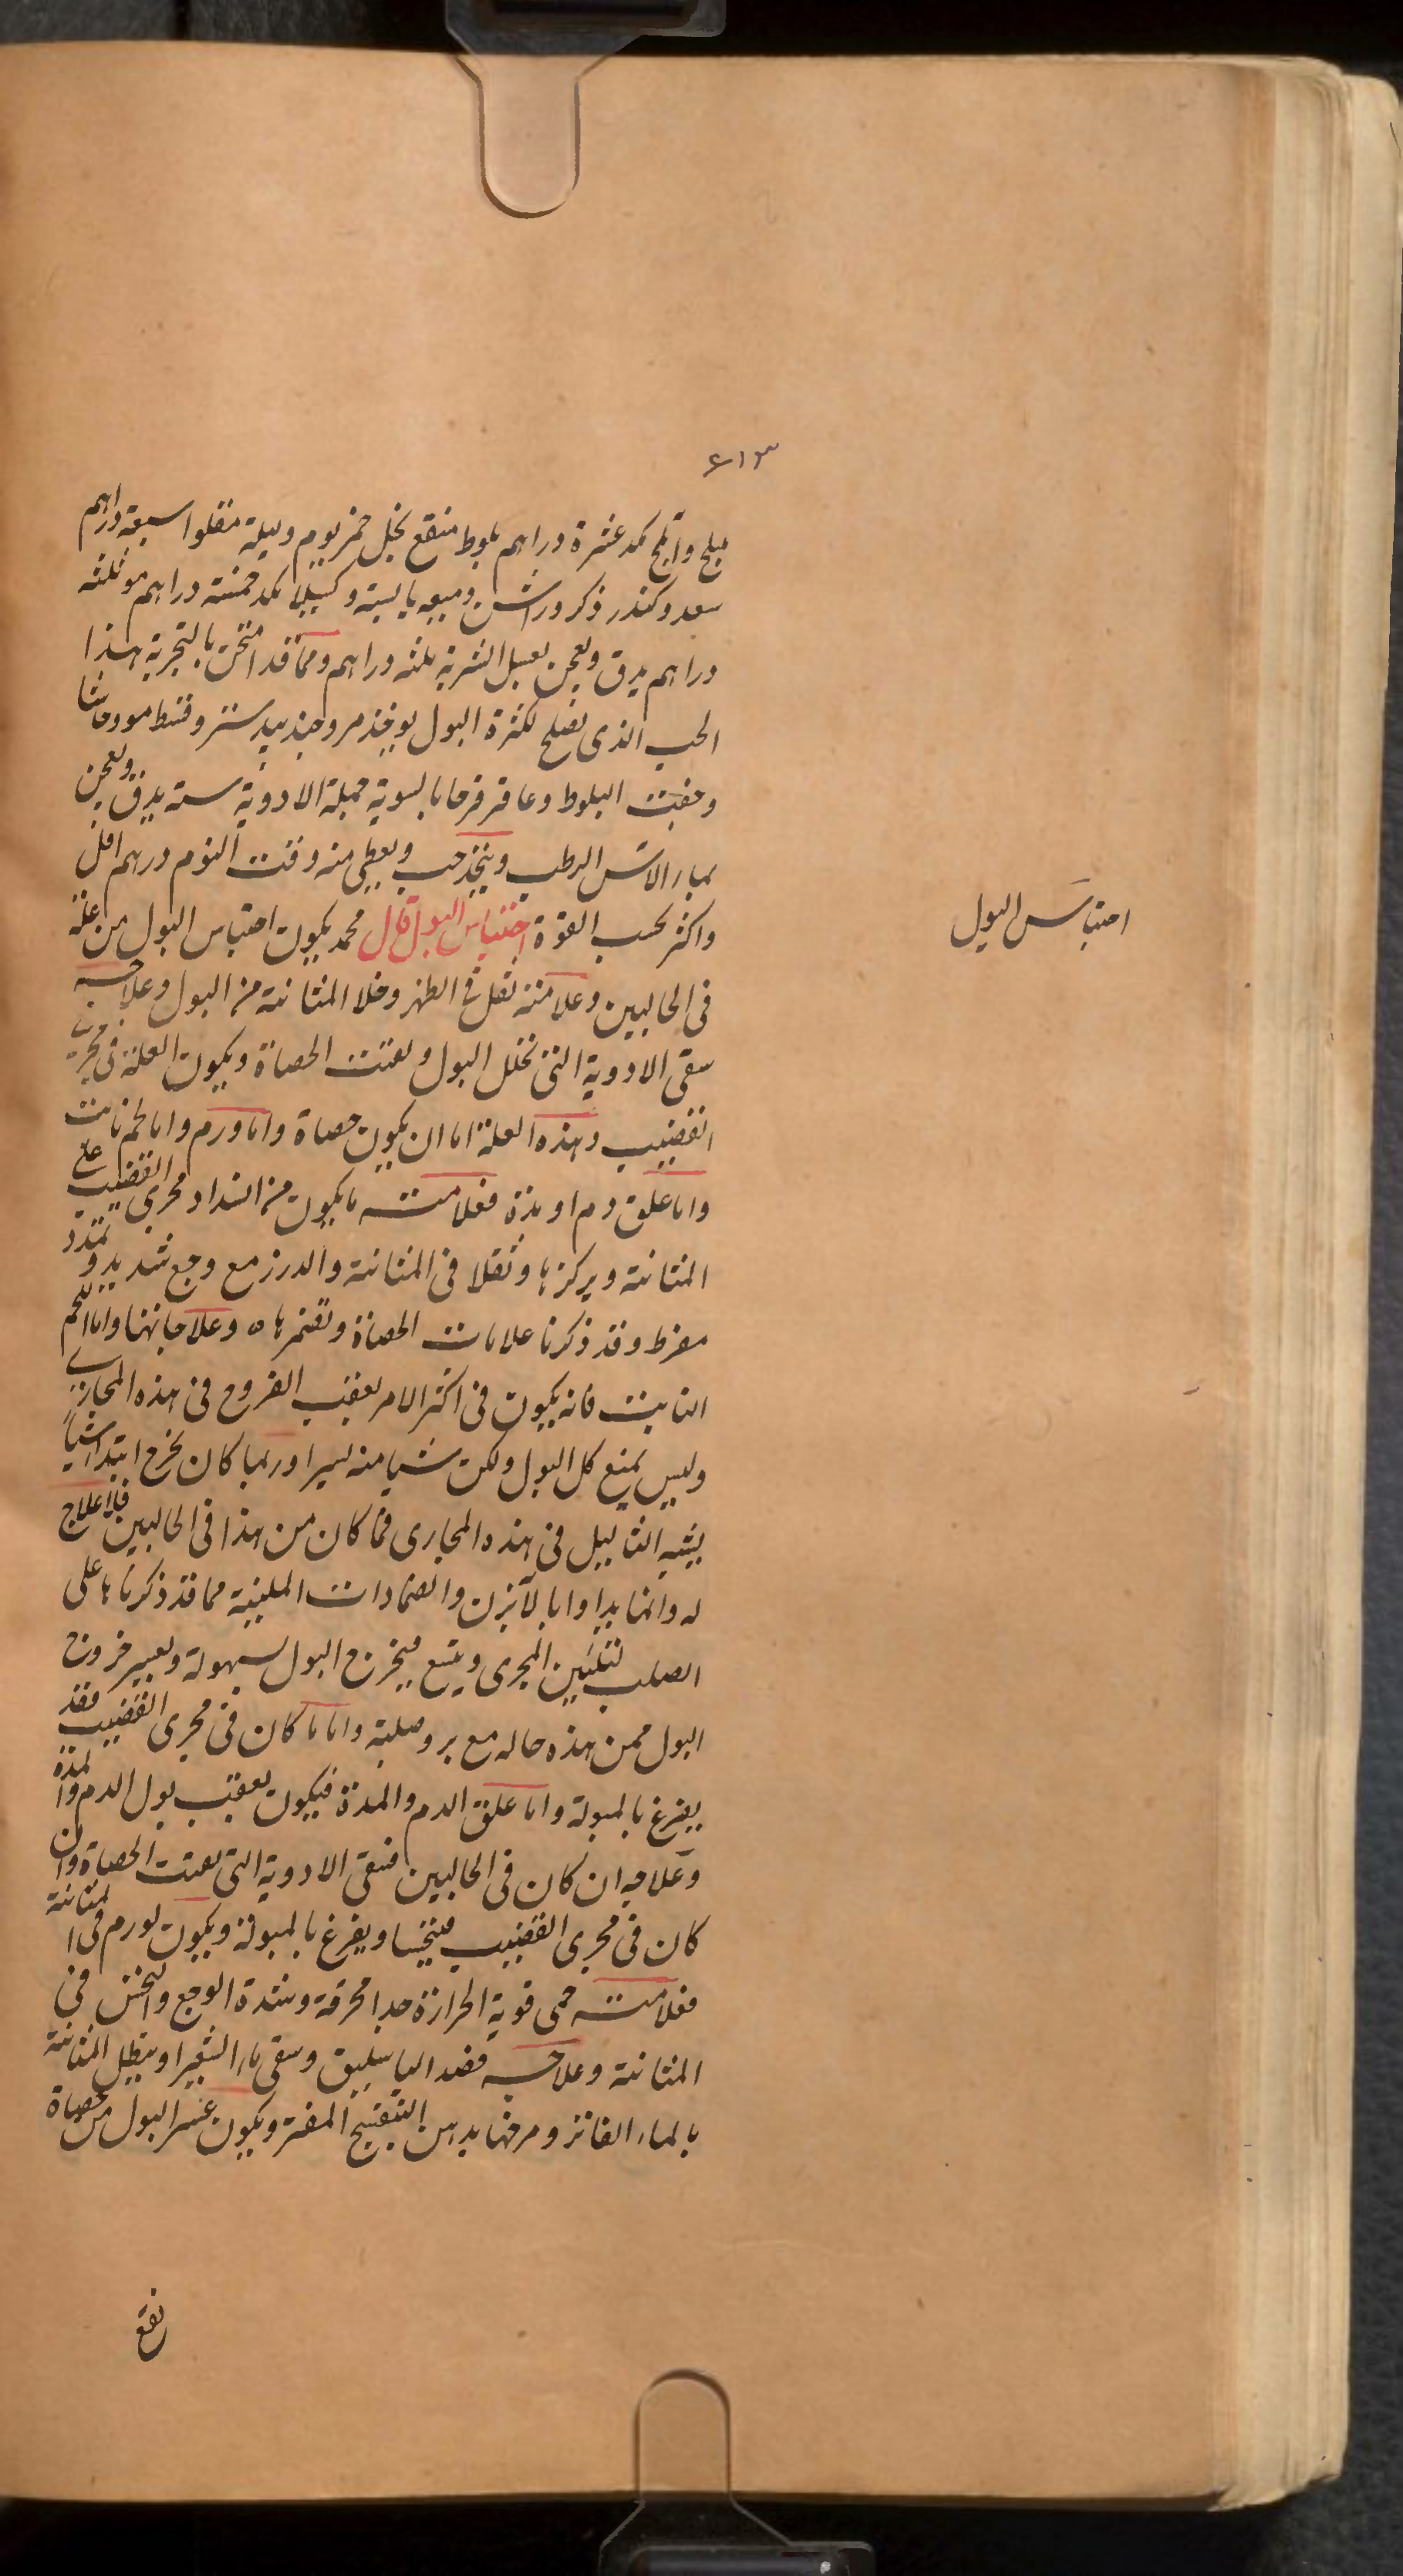 ٤١٣
ملج وآبلج مكد عشرة دراهم بلوط منقع بخل خمر يوم وليلة مقلوا سبعة دراهم
سعد وكندر ذكر وراشن وميعه يابسة وكسيلا مكد خمسة دراهم مو ثلثه
دراهم يدق ويعجن بعسل الشربة ثلثه دراهم ومما قد امتحن بالتجربة هذا
الحب الذى يصلح لكثرة البول يوخذ مر وجندبيدستر وقسط مو وحاشا
وجفت البلوط وعاقرقرحا بالسوية جملة الادوية ستة يدق ويعجن
بماء الاس الرطب ويتخذ حب ويعطى منه وقت النوم درهم اقل
واكثر بحسب القوة احتباس البول قال محمد يكون احتباس البول من علة
احتباس البول
فى الحالبين وعلامته ثقل فى الظهر وخلا المثانة من البول وعلاجه
سقى الادوية التى تخلل البول وتفتت الحصاة ويكون العلة فى مجرى
القضيب وهذه العلة اما ان يكون حصاة واما ورم واما لحم نابت
واما علق دم او مدة فعلامته ما يكون من انسداد مجرى القضيب على
المثانة ويركزها وثقلا فى المثانة والدرز مع وجع شديد وتمدد
مفرط وقد ذكرنا علامات الحصاة وتقنمرها ه وعلاجاتها واما اللحم
النابت فانه يكون فى اكثر الامر بعقب القروح فى هذه المجارى
وليس يمنع كل البول ولكن شيا منه يسيرا وربما كان يخرج ابتداء شيأ
يشبه الثاليل فى هذه المجارى فما كان من هذا فى الحالبين فلا علاج
له وانما يداوا بالآبزن والضمادات الملينة مما قد ذكرناها على
الصلب لتليين المجرى ويتسع فيخرج البول بسهولة ويعسر خروج
البول ممن هذه حاله مع برد صلبة واما ما كان فى مجرى القضيب فقد
يفرغ بالمبولة واما علق الدم والمدة فيكون بعقب بول الدم والمدة
وعلاجه ان كان فى الحالبين فسقى الادوية التى تفتت الحصاة وان
كان فى مجرى القضيب فينحيسا ويفرغ بالمبولة ويكون لورم فى المثانة
فعلامته حمى قوية الحرارة جدا محرقة وشدة الوجع والنخس فى
المثانة وعلاجه فصد الباسليق وسقى ماء الشعير او ينطل المثانة
بالماء الفاتر ومرخها بدهن البنفسج المفتر ويكون عسر البول من حصاة
نفع